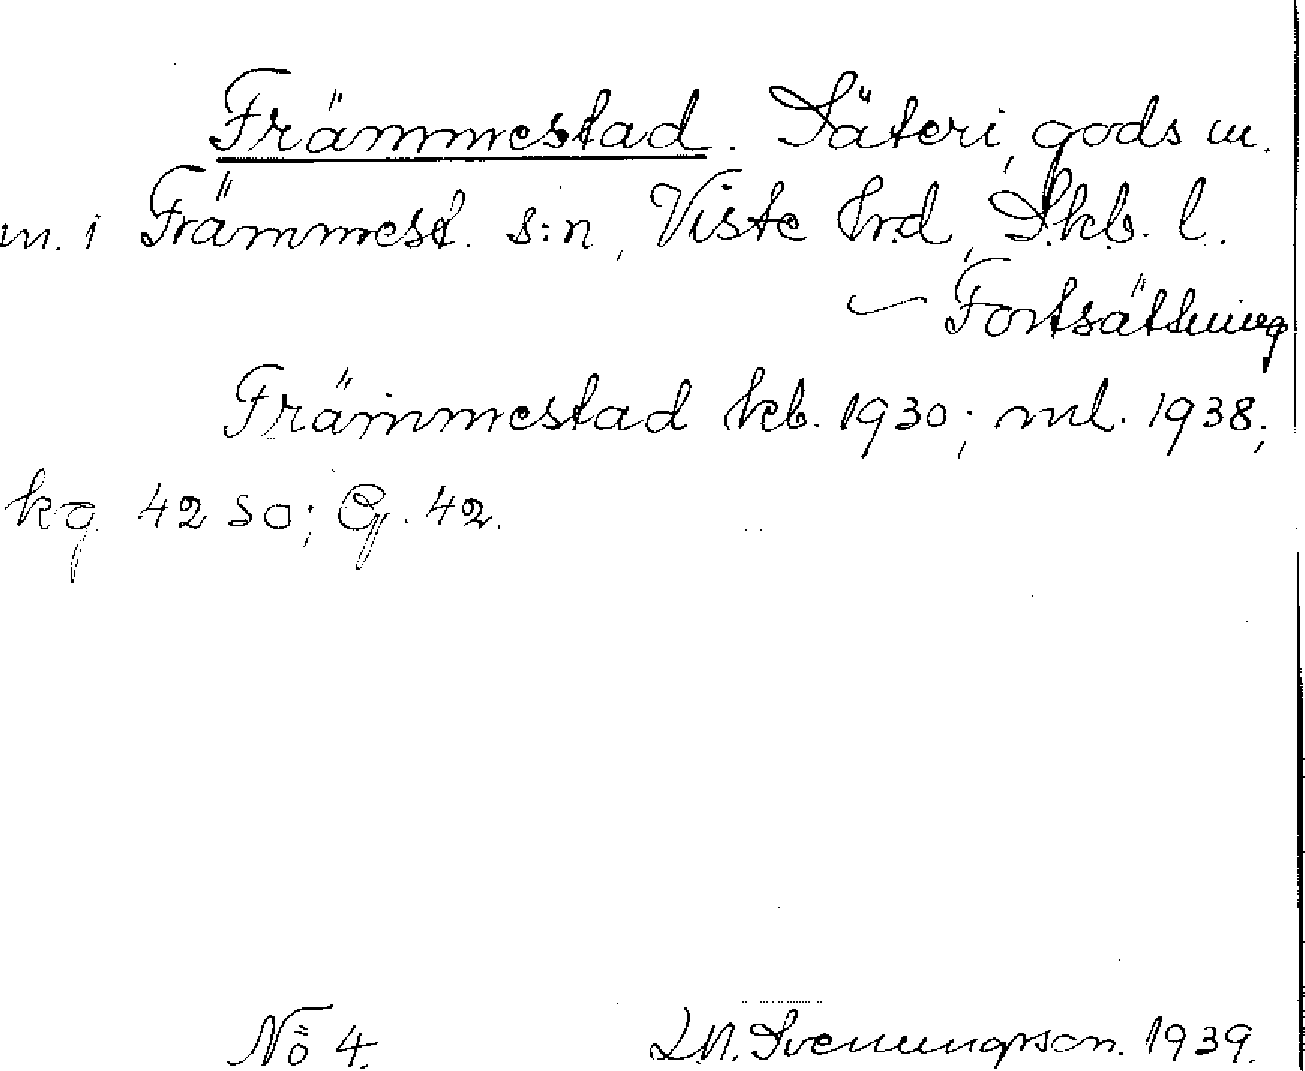 Främmestad. Säteri, gods m.
m. i Främmest. s:n, Viste hrd, Skb. l.
— Fortsättning
Främmestad kb. 1930; ml. 1938;
kg 42 so; G. 42.
Nö 4. Svenungsson. 1939.